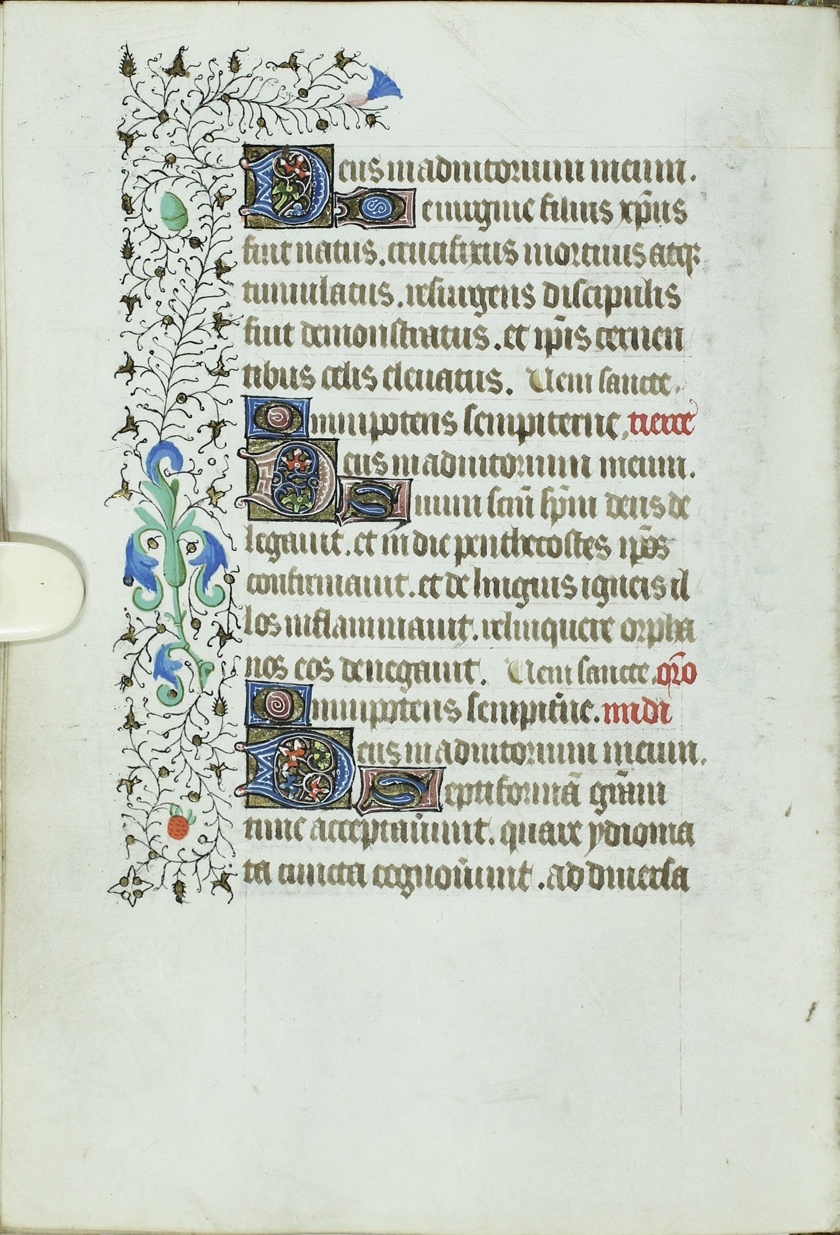 Deus in adiutorium meum.
De uirgine filius xp̃us
fuit natus. crucifixus mortuus atqꝫ
tumulatus. resurgens discipulis
fuit demonstratus. et ip̃is cernen
tibus celis eleuatus. Ueni sancte.
Omnipotens sempiterne, tierce
Deus in adiutorium meum.
Suum sc̃m sp̃m deus de
legauit. et in die penthecostes ip̃os
confirmauit. et de linguis igneis il
los inflammauit. relinquere orpha
nos eos denegauit. Ueni sancte. or̃o
Omnipotens sempit̃ne. midi
Deus in adiutorium meum.
Septiformã gr̃am
tunc acceptauũunt. quare ydioma
ta cuncta cognoũunt. ad diuersa